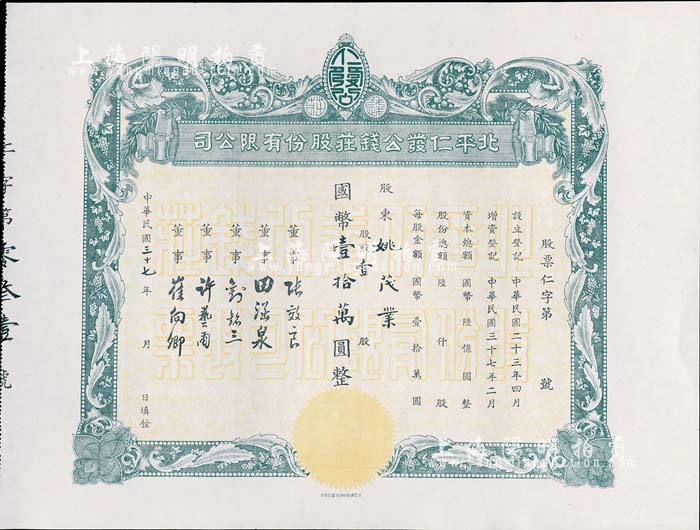 上海陽明拍賣
仁發公
北平仁發公錢莊股份有限公司
股票仁字第　號
設立登記　中華民國二十三年四月
增資登記　中華民國三十七年二月
資本總額　國幣陸億圓整
股份總額　陸仟股
每股金額　國幣壹十萬圓
股東　姚茂業
股數　壹　股
國幣壹拾萬圓整
董事　張效良
董事　田潤泉
董事　劉銘三
董事　許藝圃
董事　崔向卿
中華民國三十七年　月　日填發
仁字第零叁壹號
上海陽明拍賣